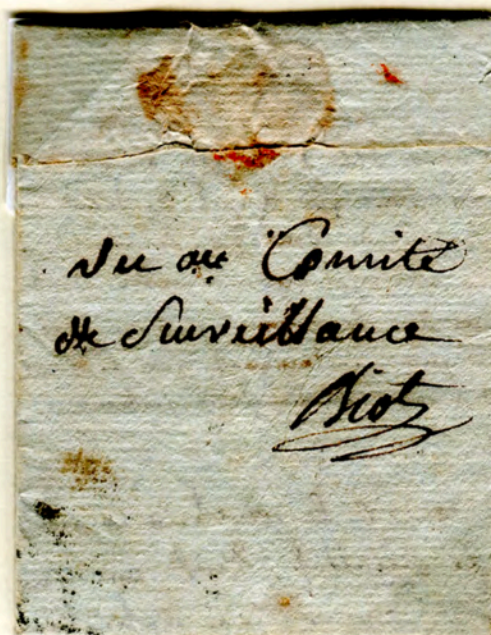 Vu au Comité
de Surveillance
Biot